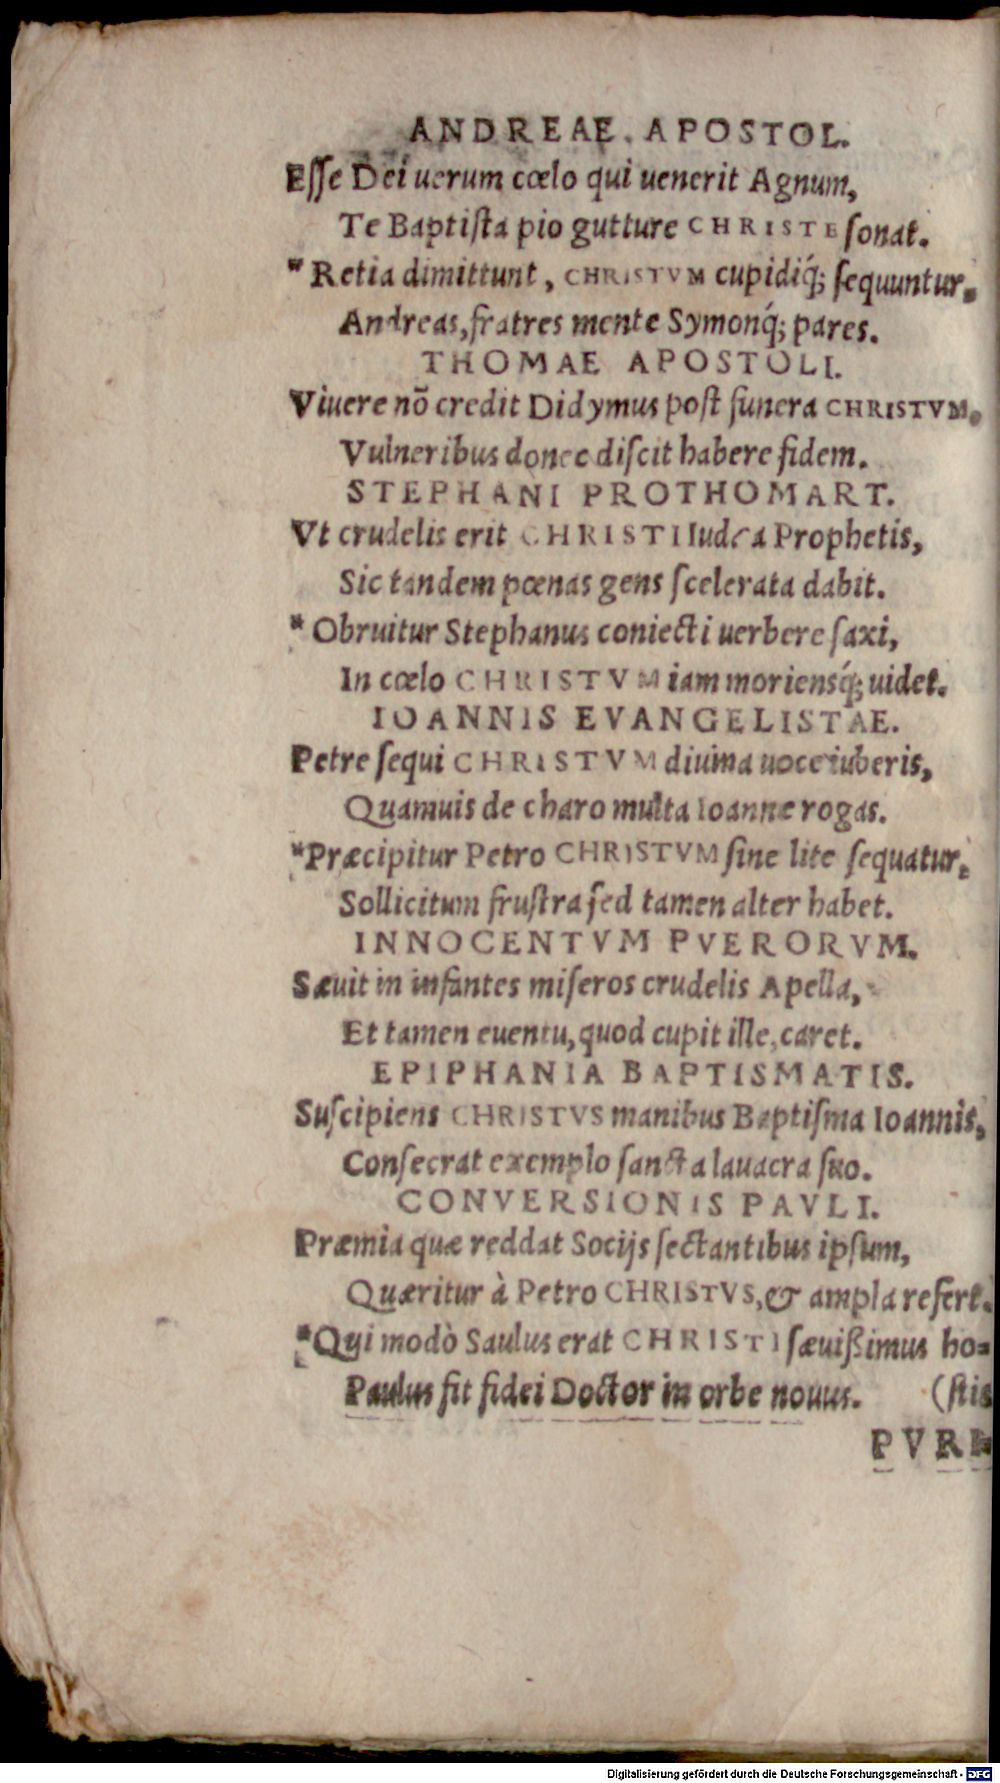 ANDREAE. APOSTOL.
Eſſe Dei uerum cœlo qui uenerit Agnum,
Te Baptiſta pio gutture CHRISTE ſonat.
* Retia dimittunt, CHRISTVM cupidiq́; ſequuntur.
Andreas, fratres mente Symonq́; pares.
THOMAE APOSTOLI.
Viuere nō credit Didymus poſt funera CHRISTVM.
Vulneribus donec diſcit habere fidem.
STEPHANI PROTHOMART.
Vt crudelis erit CHRISTI Iudæa Prophetis,
Sic tandem pœnas gens ſcelerata dabit.
* Obruitur Stephanus coniecti uerbere ſaxi,
In cœlo CHRISTVM iam moriensq́; uidet.
IOANNIS EVANGELISTAE.
Petre ſequi CHRISTVM diuina uoce iuberis,
Quamuis de charo multa Ioanne rogas.
* Præcipitur Petro CHRISTVM ſine lite ſequatur,
Sollicitum fruſtra ſed tamen alter habet.
INNOCENTVM PVERORVM.
Sæuit in infantes miſeros crudelis Apella,
Et tamen euentu, quod cupit ille, caret.
EPIPHANIA BAPTISMATIS.
Suſcipiens CHRISTVS manibus Baptiſma Ioannis,
Conſecrat exemplo ſancta lauacra ſuo.
CONVERSIONIS PAVLI.
Præmia quæ reddat Socijs ſectantibus ipſum,
Quæritur à Petro CHRISTVS, & ampla refert.
* Qui modò Saulus erat CHRISTI ſæuißimus ho-
Paulus fit fidei Doctor in orbe nouus. (ſtis
PVRI-
Digitalisierung gefördert durch die Deutsche Forschungsgemeinschaft - DFG